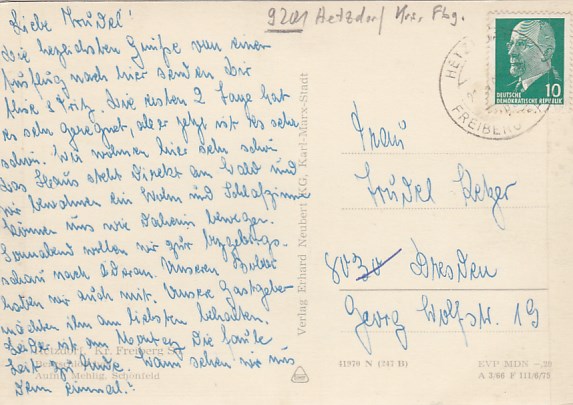 9201 Hetzdorf Krs. Fbg.
Liebe Trudel!
Die herzlichsten Grüße von einem
Ausflug nach hier senden Dir
Fritz. Die ersten 2 Tage hat
es sehr geregnet, aber jetzt ist es sehr
schön. Wir wohnen hier sehr schön
das Haus steht direkt am Wald und
wir bewohnen ein Wohn und Schlafzimmer
können uns wie daheim bewegen.
Sonnabend wollen wir zur Erzgebirgs-
schau nach Öderan. Unseren
haben wir auch mit. Unsere Gastgeber
möchten ihn am liebsten behalten.
Leider ist am Montag Die faule
Zeit zu Ende. Wann sehen wir uns
denn einmal?
Hetzdorf, Kr. Freiberg
Aufn. Mehlig, Schönfeld
Verlag Erhard Neubert KG, Karl-Marx-Stadt
HETZ
FREIBERG
10
DEUTSCHE
DEMOKRATISCHE REPUBLIK
Frau
Trudel
8030 Dresden
Georg Wolfstr. 19
41970 N (247 B)
EVP MDN -,20
A 3/66 F 111/6/73